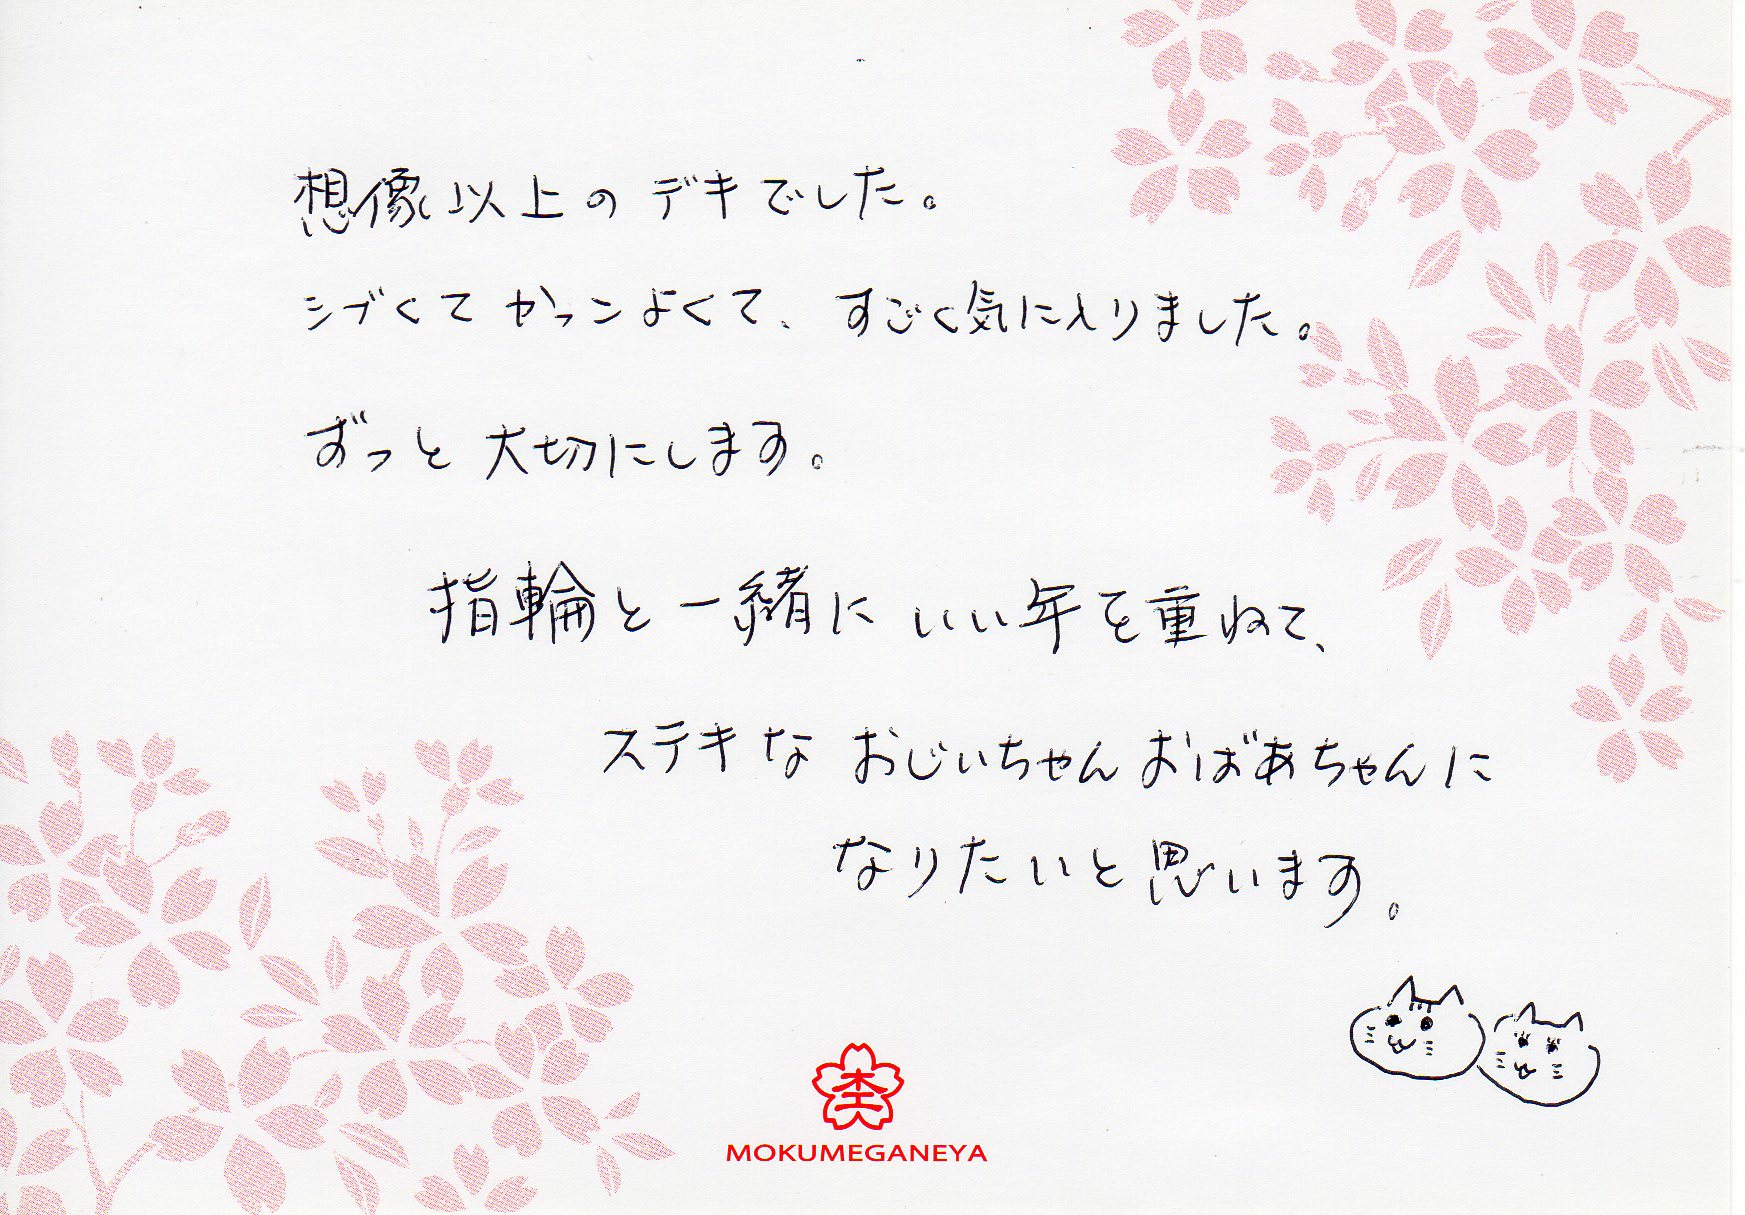 想像以上のデキでした。
シブくてかっこよくて、すごく気に入りました。
ずっと大切にします。
指輪と一緒にいい年を重ねて、
ステキなおじいちゃんおばあちゃんに
なりたいと思います。
MOKUMEGANEYA